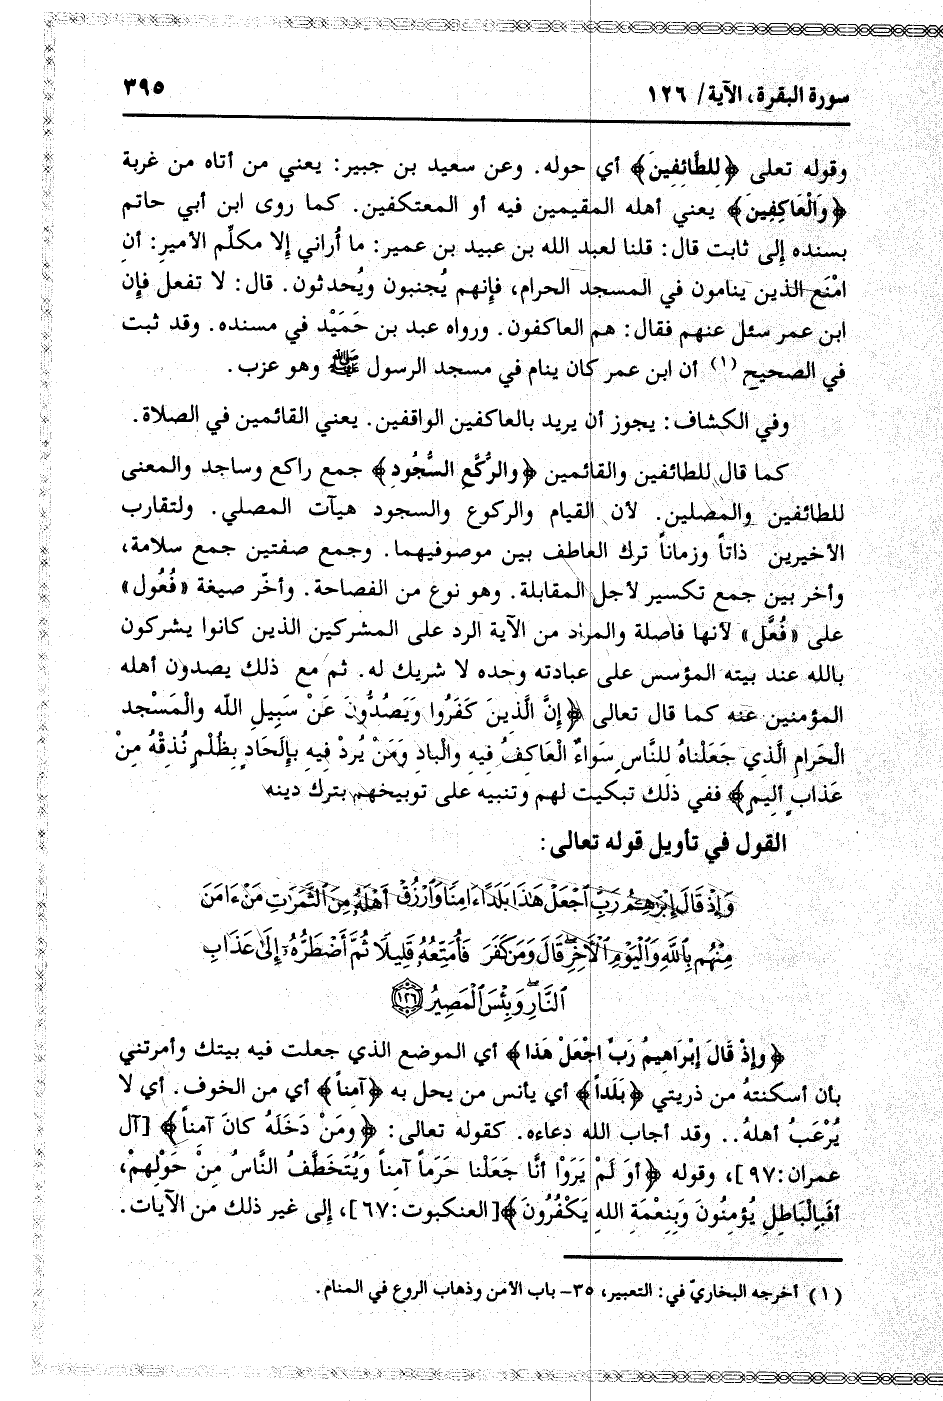 سورة البقرة، الآية/ ١٢٦
٣٩٥
وقوله تعلى ﴿لِلطَّائِفِينَ﴾ أي حوله. وعن سعيد بن جبير: يعني من أتاه من غربة
﴿وَالْعَاكِفِينَ﴾ يعني أهله المقيمين فيه أو المعتكفين. كما روى ابن أبي حاتم
بسنده إلى ثابت قال: قلنا لعبد الله بن عبيد بن عمير: ما أُراني إلا مكلِّم الأمير: أن
امْنَع الذين ينامون في المسجد الحرام، فإنهم يُجنبون ويُحدثون. قال: لا تفعل فإن
ابن عمر سئل عنهم فقال: هم العاكفون. ورواه عبد بن حَمَيْد في مسنده. وقد ثبت
في الصحيح (١) أن ابن عمر كان ينام في مسجد الرسول ﷺ وهو عزب.
وفي الكشاف: يجوز أن يريد بالعاكفين الواقفين. يعني القائمين في الصلاة.
كما قال للطائفين والقائمين ﴿والرُّكَّعِ السُّجُودِ﴾ جمع راكع وساجد والمعنى
للطائفين والمصلين. لأن القيام والركوع والسجود هيآت المصلي. ولتقارب
الأخيرين ذاتاً وزماناً ترك العاطف بين موصوفيهما. وجمع صفتين جمع سلامة،
وأخر بين جمع تكسير لأجل المقابلة. وهو نوع من الفصاحة. وأخّر صيغة «فُعُول»
على «فُعَّل» لأنها فاصلة والمراد من الآية الرد على المشركين الذين كانوا يشركون
بالله عند بيته المؤسس على عبادته وحده لا شريك له. ثم مع ذلك يصدون أهله
المؤمنين عنه كما قال تعالى ﴿إِنَّ الَّذِينَ كَفَرُوا وَيَصُدُّونَ عَنْ سَبِيلِ اللّه والْمَسْجد
الْحَرام الَّذِي جَعَلْناهُ لِلنَّاسِ سَواءٌ الْعَاكفُ فِيهِ والْبادِ وَمَنْ يُردْ فِيهِ بإِلْحَادٍ بِظُلْمٍ نُذِقْهُ مِنْ
عَذابٍ أليمٍ﴾ ففي ذلك تبكيت لهم وتنبيه على توبيخهم بترك دينه
القول في تأويل قوله تعالى:
وَإِذْ قَالَ إِبْرَٰهِـۧمُ رَبِّ ٱجْعَلْ هَٰذَا بَلَدًا ءَامِنًا وَٱرْزُقْ أَهْلَهُۥ مِنَ ٱلثَّمَرَٰتِ مَنْ ءَامَنَ
مِنْهُم بِٱللَّهِ وَٱلْيَوْمِ ٱلْآخِرِ ۖ قَالَ وَمَن كَفَرَ فَأُمَتِّعُهُۥ قَلِيلًا ثُمَّ أَضْطَرُّهُۥٓ إِلَىٰ عَذَابِ
ٱلنَّارِ ۖ وَبِئْسَ ٱلْمَصِيرُ ١٢٦
﴿وإِذْ قَالَ إبْرَاهِيمُ رَبِّ اجْعَلْ هَذا﴾ أي الموضع الذي جعلت فيه بيتك وأمرتني
بأن أسكنتهُ من ذريتي ﴿بَلَداً﴾ أي يأنس من يحل به ﴿آمناً﴾ أي من الخوف. أي لا
يُرْعَبُ أهلهُ.. وقد أجاب الله دعاءه. كقوله تعالى: ﴿ومَنْ دَخَلَهُ كانَ آمناً﴾ [آل
عمران: ٩٧]، وقوله ﴿أوَ لَمْ يَرَوْا أنَّا جَعَلْنا حَرَماً آمناً وَيُتَخَطَّفُ النَّاسُ مِنْ حَوْلِهِمْ،
أفَبِالْبَاطِلِ يُؤمِنُونَ وَبِنِعْمَةِ اللهِ يَكْفُرُونَ﴾ [العنكبوت: ٦٧]، إلى غير ذلك من الآيات.
(١) أخرجه البخاريّ في: التعبير، ٣٥- باب الأمن وذهاب الروع في المنام.